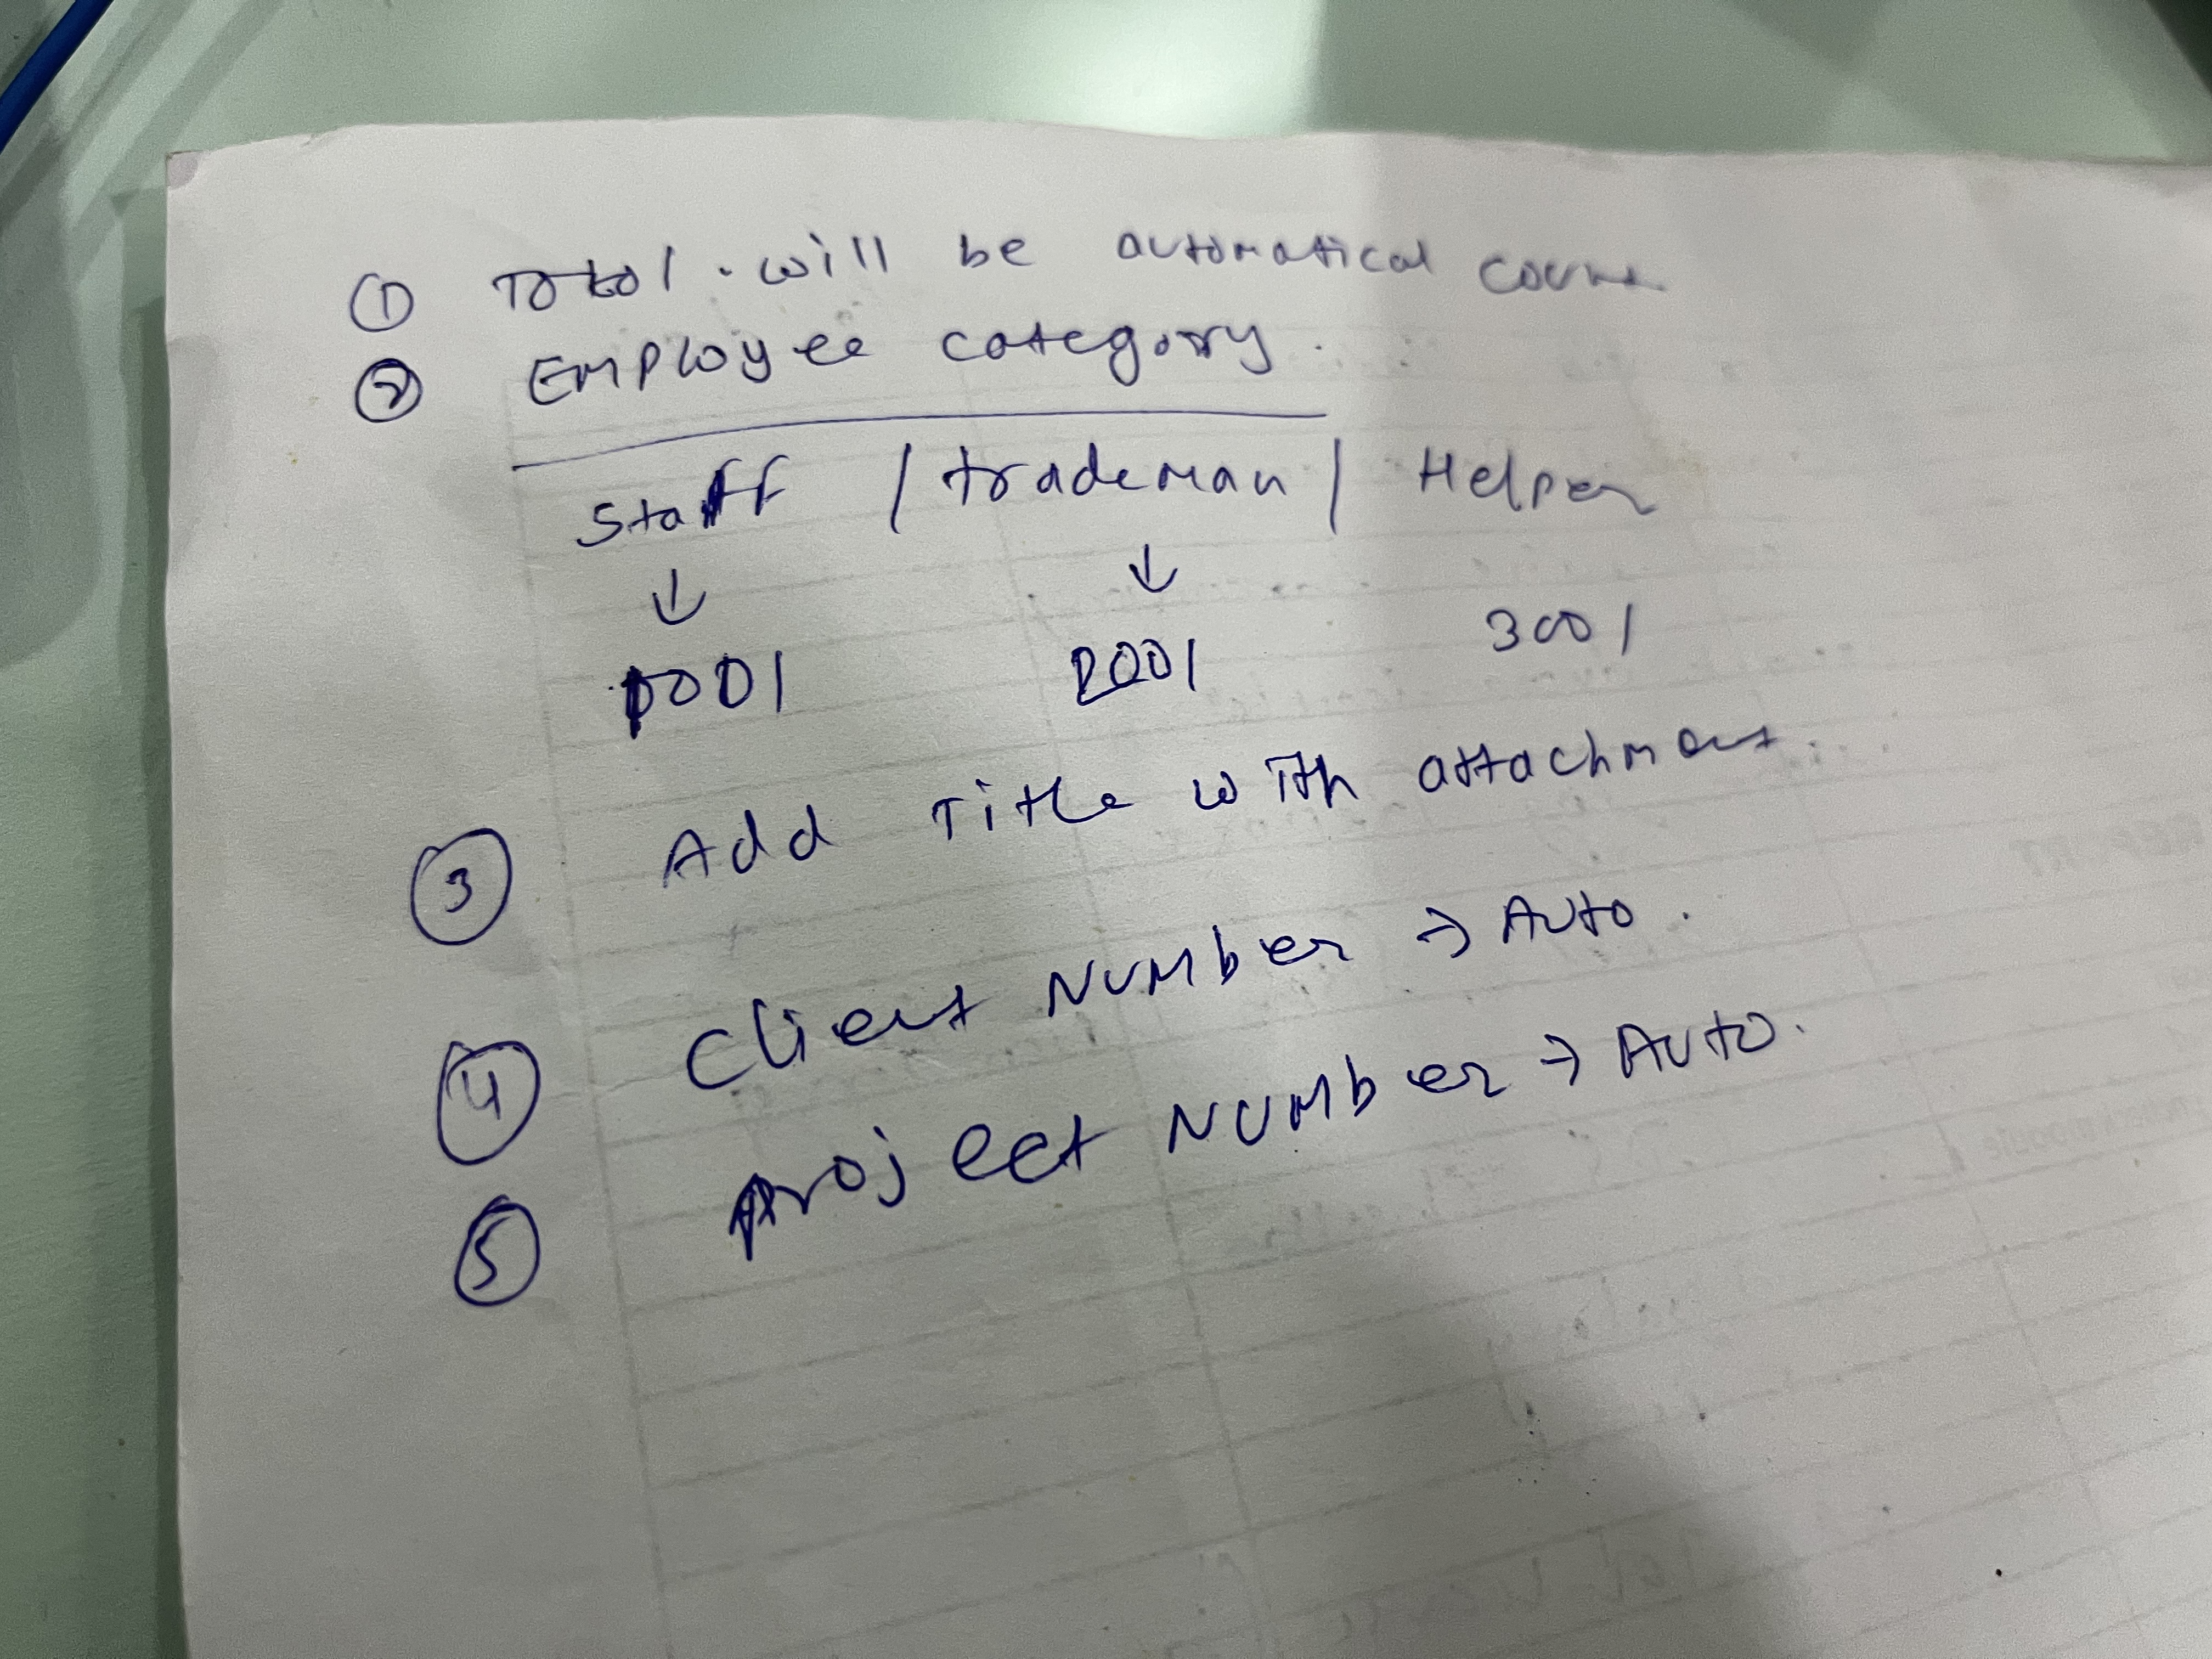 ① Total. will be automatical
② Employee category.
Staff / trademan / Helper
↓ ↓
1001 2001 3001
③ Add Title with attachment.
④ Client Number → Auto.
⑤ Project Number → Auto.
REPORT